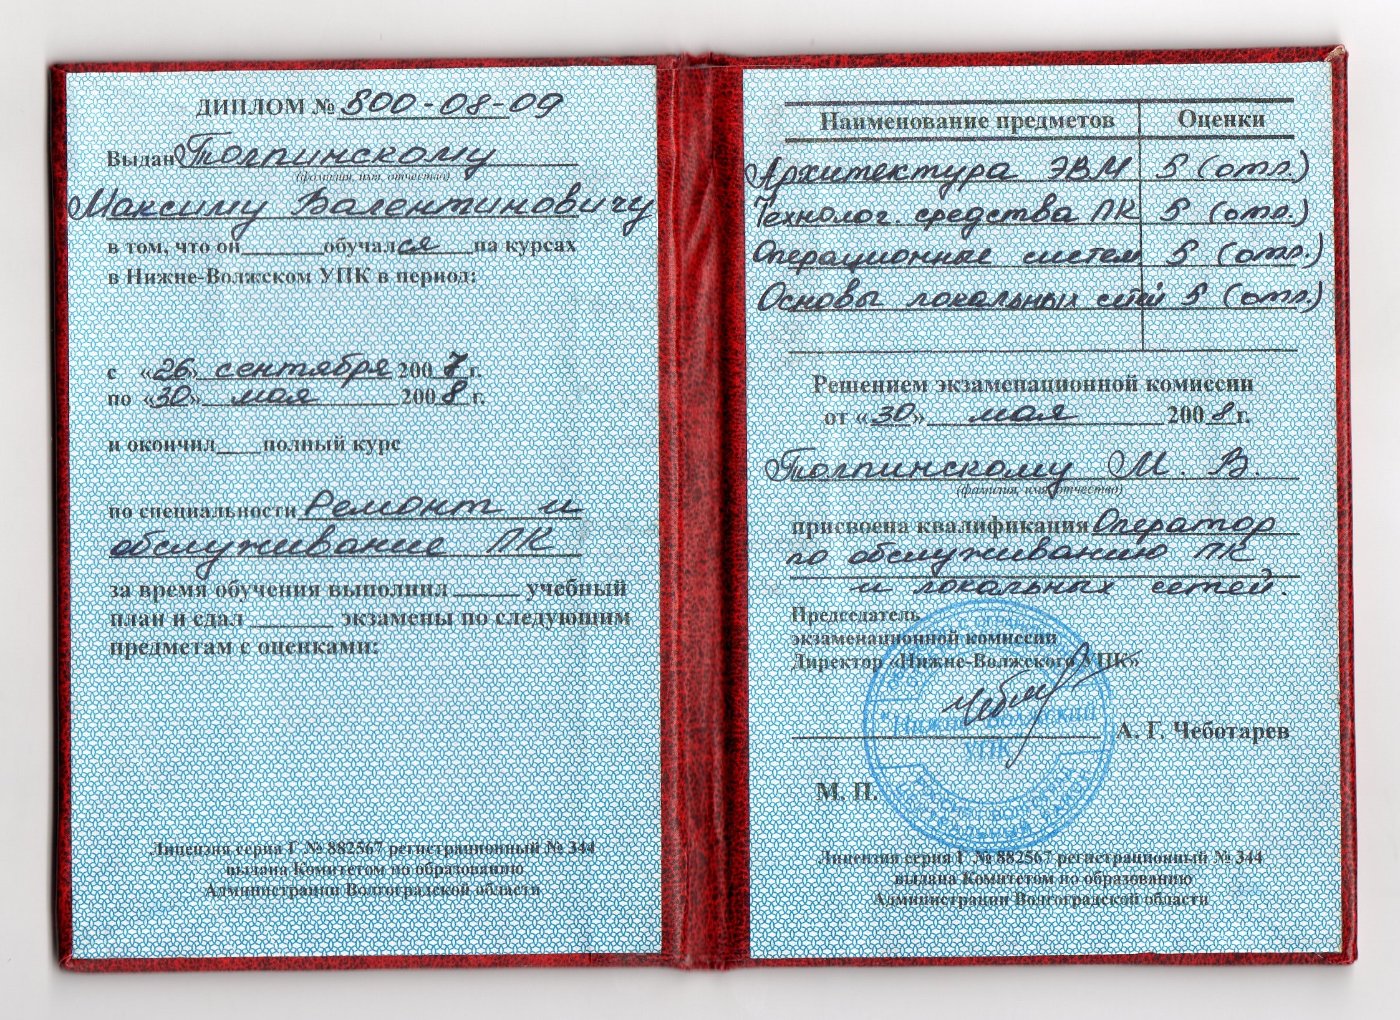 ДИПЛОМ № 800-08-09
Выдан Толпинскому
(фамилия, имя, отчество)
Максиму Валентиновичу
в том, что он обучался на курсах
в Нижне-Волжском УПК в период:
с «26» сентября 2007 г.
по «30» мая 2008 г.
и окончил полный курс
по специальности Ремонт и
обслуживание ПК
за время обучения выполнил учебный
план и сдал экзамены по следующим
предметам с оценками:
Лицензия серия Г № 882567 регистрационный № 344
выдана Комитетом по образованию
Администрации Волгоградской области
Наименование предметов Оценки
Архитектура ЭВМ 5 (отл.)
Технолог. средства ПК 5 (отл.)
Операционные систем 5 (отл.)
Основы локальных сетей 5 (отл.)
Решением экзаменационной комиссии
от «30» мая 2008 г.
Толпинскому М. В.
(фамилия, имя, отчество)
присвоена квалификация Оператор
по обслуживанию ПК
и локальных сетей.
Председатель
экзаменационной комиссии
Директор «Нижне-Волжского УПК»
Нижне-Волжский
УПК
А. Г. Чеботарев
М. П.
Лицензия серия Г № 882567 регистрационный № 344
выдана Комитетом по образованию
Администрации Волгоградской области